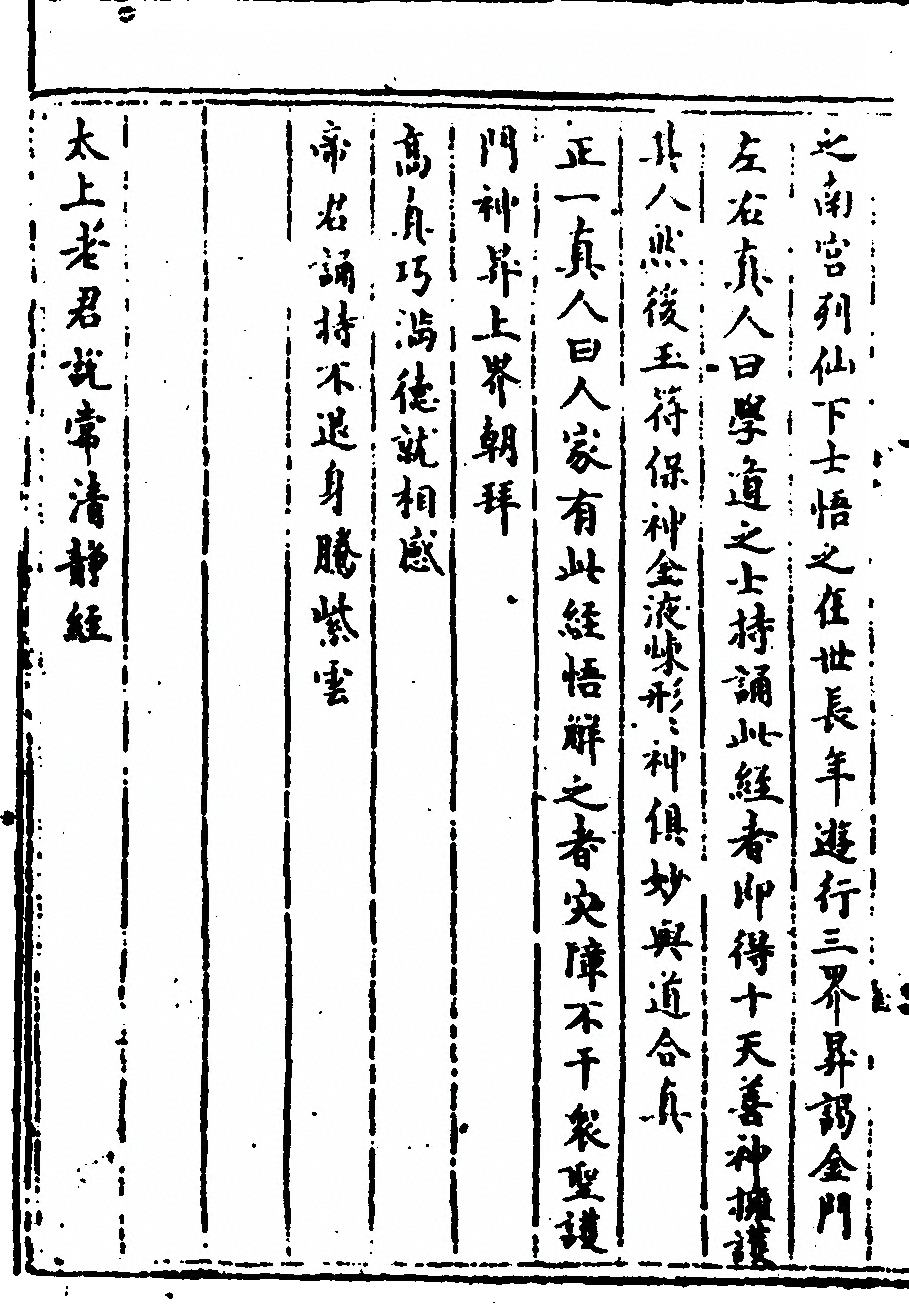 之南宫列仙下士悟之在世長年遊行三界昇謁金門
左右真人曰學道之士持誦此經者即得十天善神擁護
其人然後玉符保神金液煉形〻神俱妙與道合真
正一真人曰人家有此經悟解之者灾障不干衆聖護
門神昇上界朝拜
高真巧滿德就相感
帝君誦持不退身騰紫雲
太上老君説常清靜經